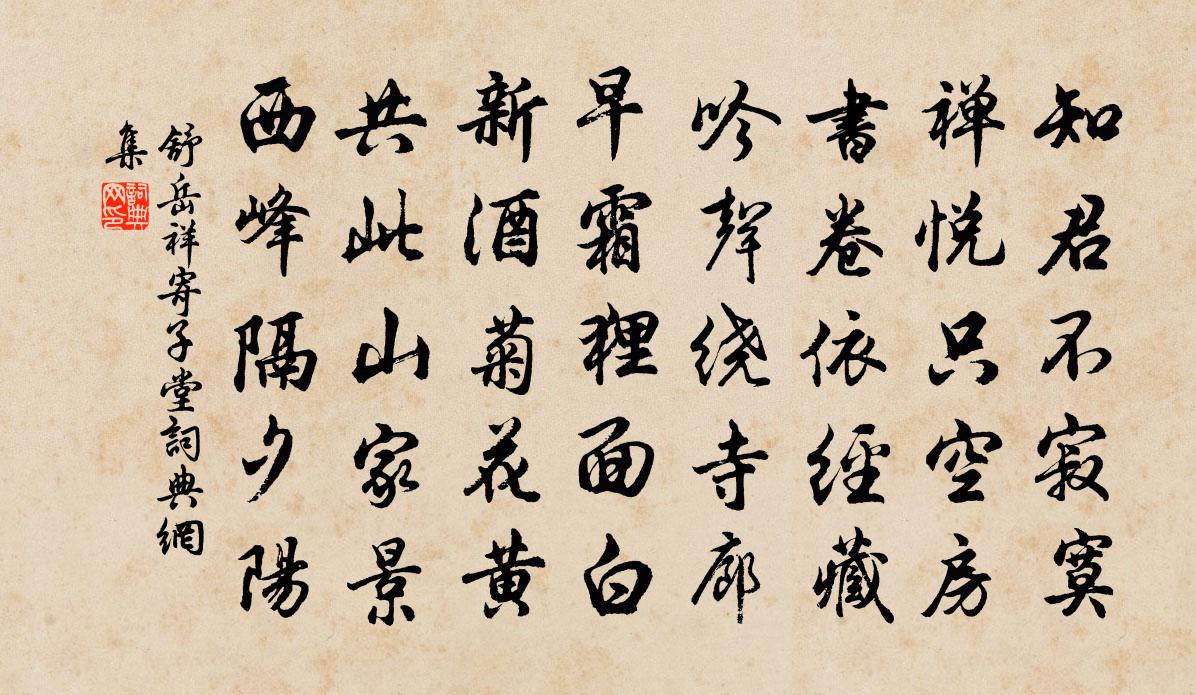 知君不寂寞
禅悦只空房
書卷依經藏
吟聲绕寺廊
早霜裡面白
新酒菊花黄
共此山家景
西峰隔夕陽
舒岳祥寄子堂詞典網
集
詞典
网印